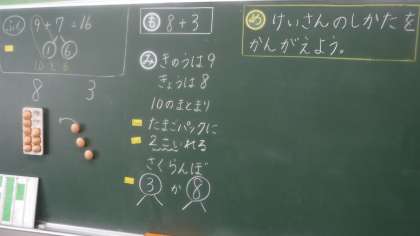 ふく 9+7=16
1 6
10と6
8 3
も 8+3
み きのうは9
きょうは8
10のまとまり
たまごパックに
2こいれる
さくらんぼ
3か8
め けいさんのしかたを
かんがえよう。